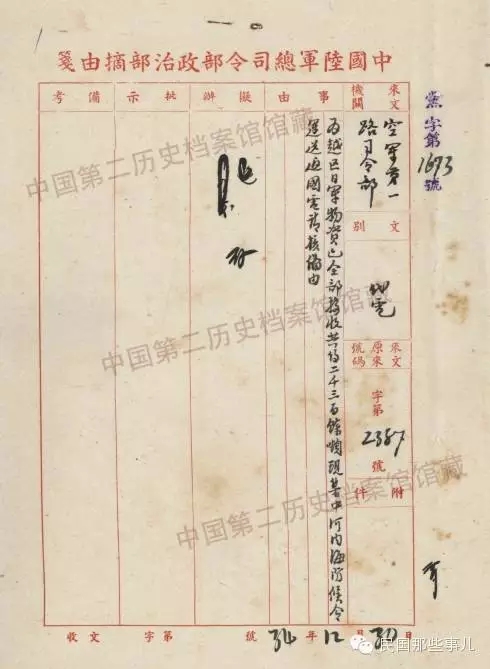 中國陸軍總司令部政治部摘由箋
字第1673號
來文機關
空軍第一
路司令部
文別
代電
來文原來號碼
字第2387號
附件
事由
為越區日軍物資已全部接收共約二千三百餘噸現集中河內海防候令
運送返國電請核備由
擬辦
存
批示
備考
收文 字第 號 34年12月30日
中国第二历史档案馆馆藏
中国第二历史档案馆馆藏
民国那些事儿